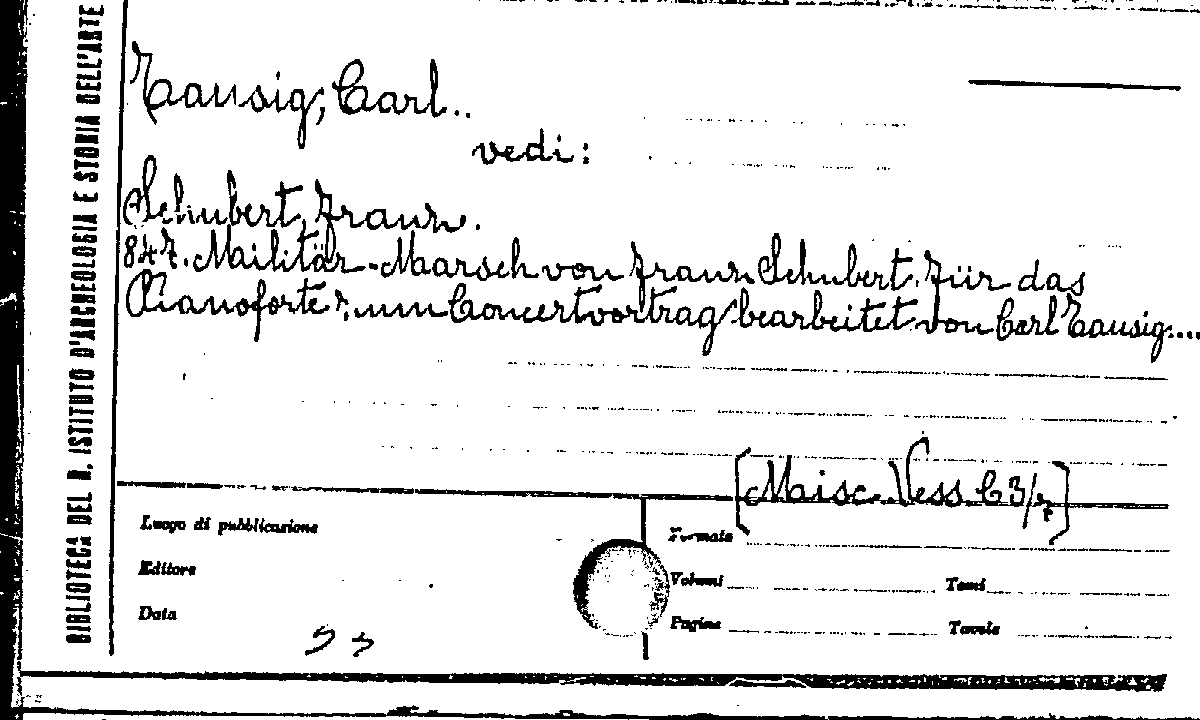 BIBLIOTECA DEL R. ISTITUTO D'ARCHEOLOGIA E STORIA DELL'ARTE
Tausig, Carl..
vedi:
Schubert, Franz.
847. Militär-Marsch von Franz Schubert. Für das
Pianoforte zum Concertvortrag bearbeitet von Carl Tausig....
[Misc. Vess. C 3/7]
Luogo di pubblicazione
Editore
Data
Formato
Volumi Tomi
Pagine Tavole